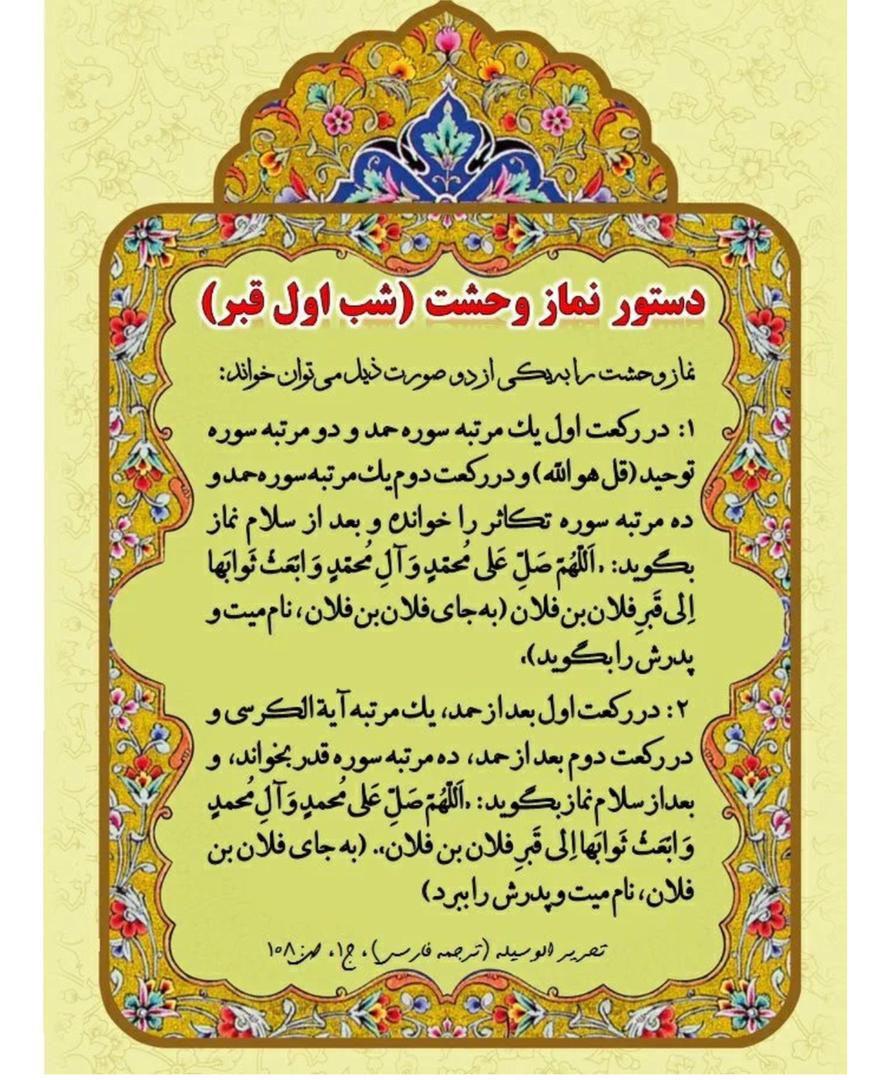 دستور نماز وحشت (شب اول قبر)
نماز وحشت را به یکی از دو صورت ذیل می‌توان خواند:
۱: در رکعت اول یك مرتبه سوره حمد و دو مرتبه سوره
توحید (قل هو الله) و در رکعت دوم یك مرتبه سوره حمد و
ده مرتبه سوره تکاثر را خوانده و بعد از سلام نماز
بگوید: «اَللّهُمّ صَلِّ عَلی مُحمّدٍ وَ آلِ مُحمّدٍ وَ ابعَث ثَوابَها
اِلی قَبرِ فلان بن فلان (به جای فلان بن فلان، نام میت و
پدرش را بگوید)».
۲: در رکعت اول بعد از حمد، یك مرتبه آیة الکرسی و
در رکعت دوم بعد از حمد، ده مرتبه سوره قدر بخواند، و
بعد از سلام نماز بگوید: «اَللّهُمّ صَلِّ عَلی مُحمدٍ وَ آلِ مُحمدٍ
وَ ابعَث ثَوابَها اِلی قَبرِ فلان بن فلان». (به جای فلان بن
فلان، نام میت و پدرش را ببرد)
تحریر الوسیله (ترجمه فارسی)، ج۱، ص: ۱۰۸